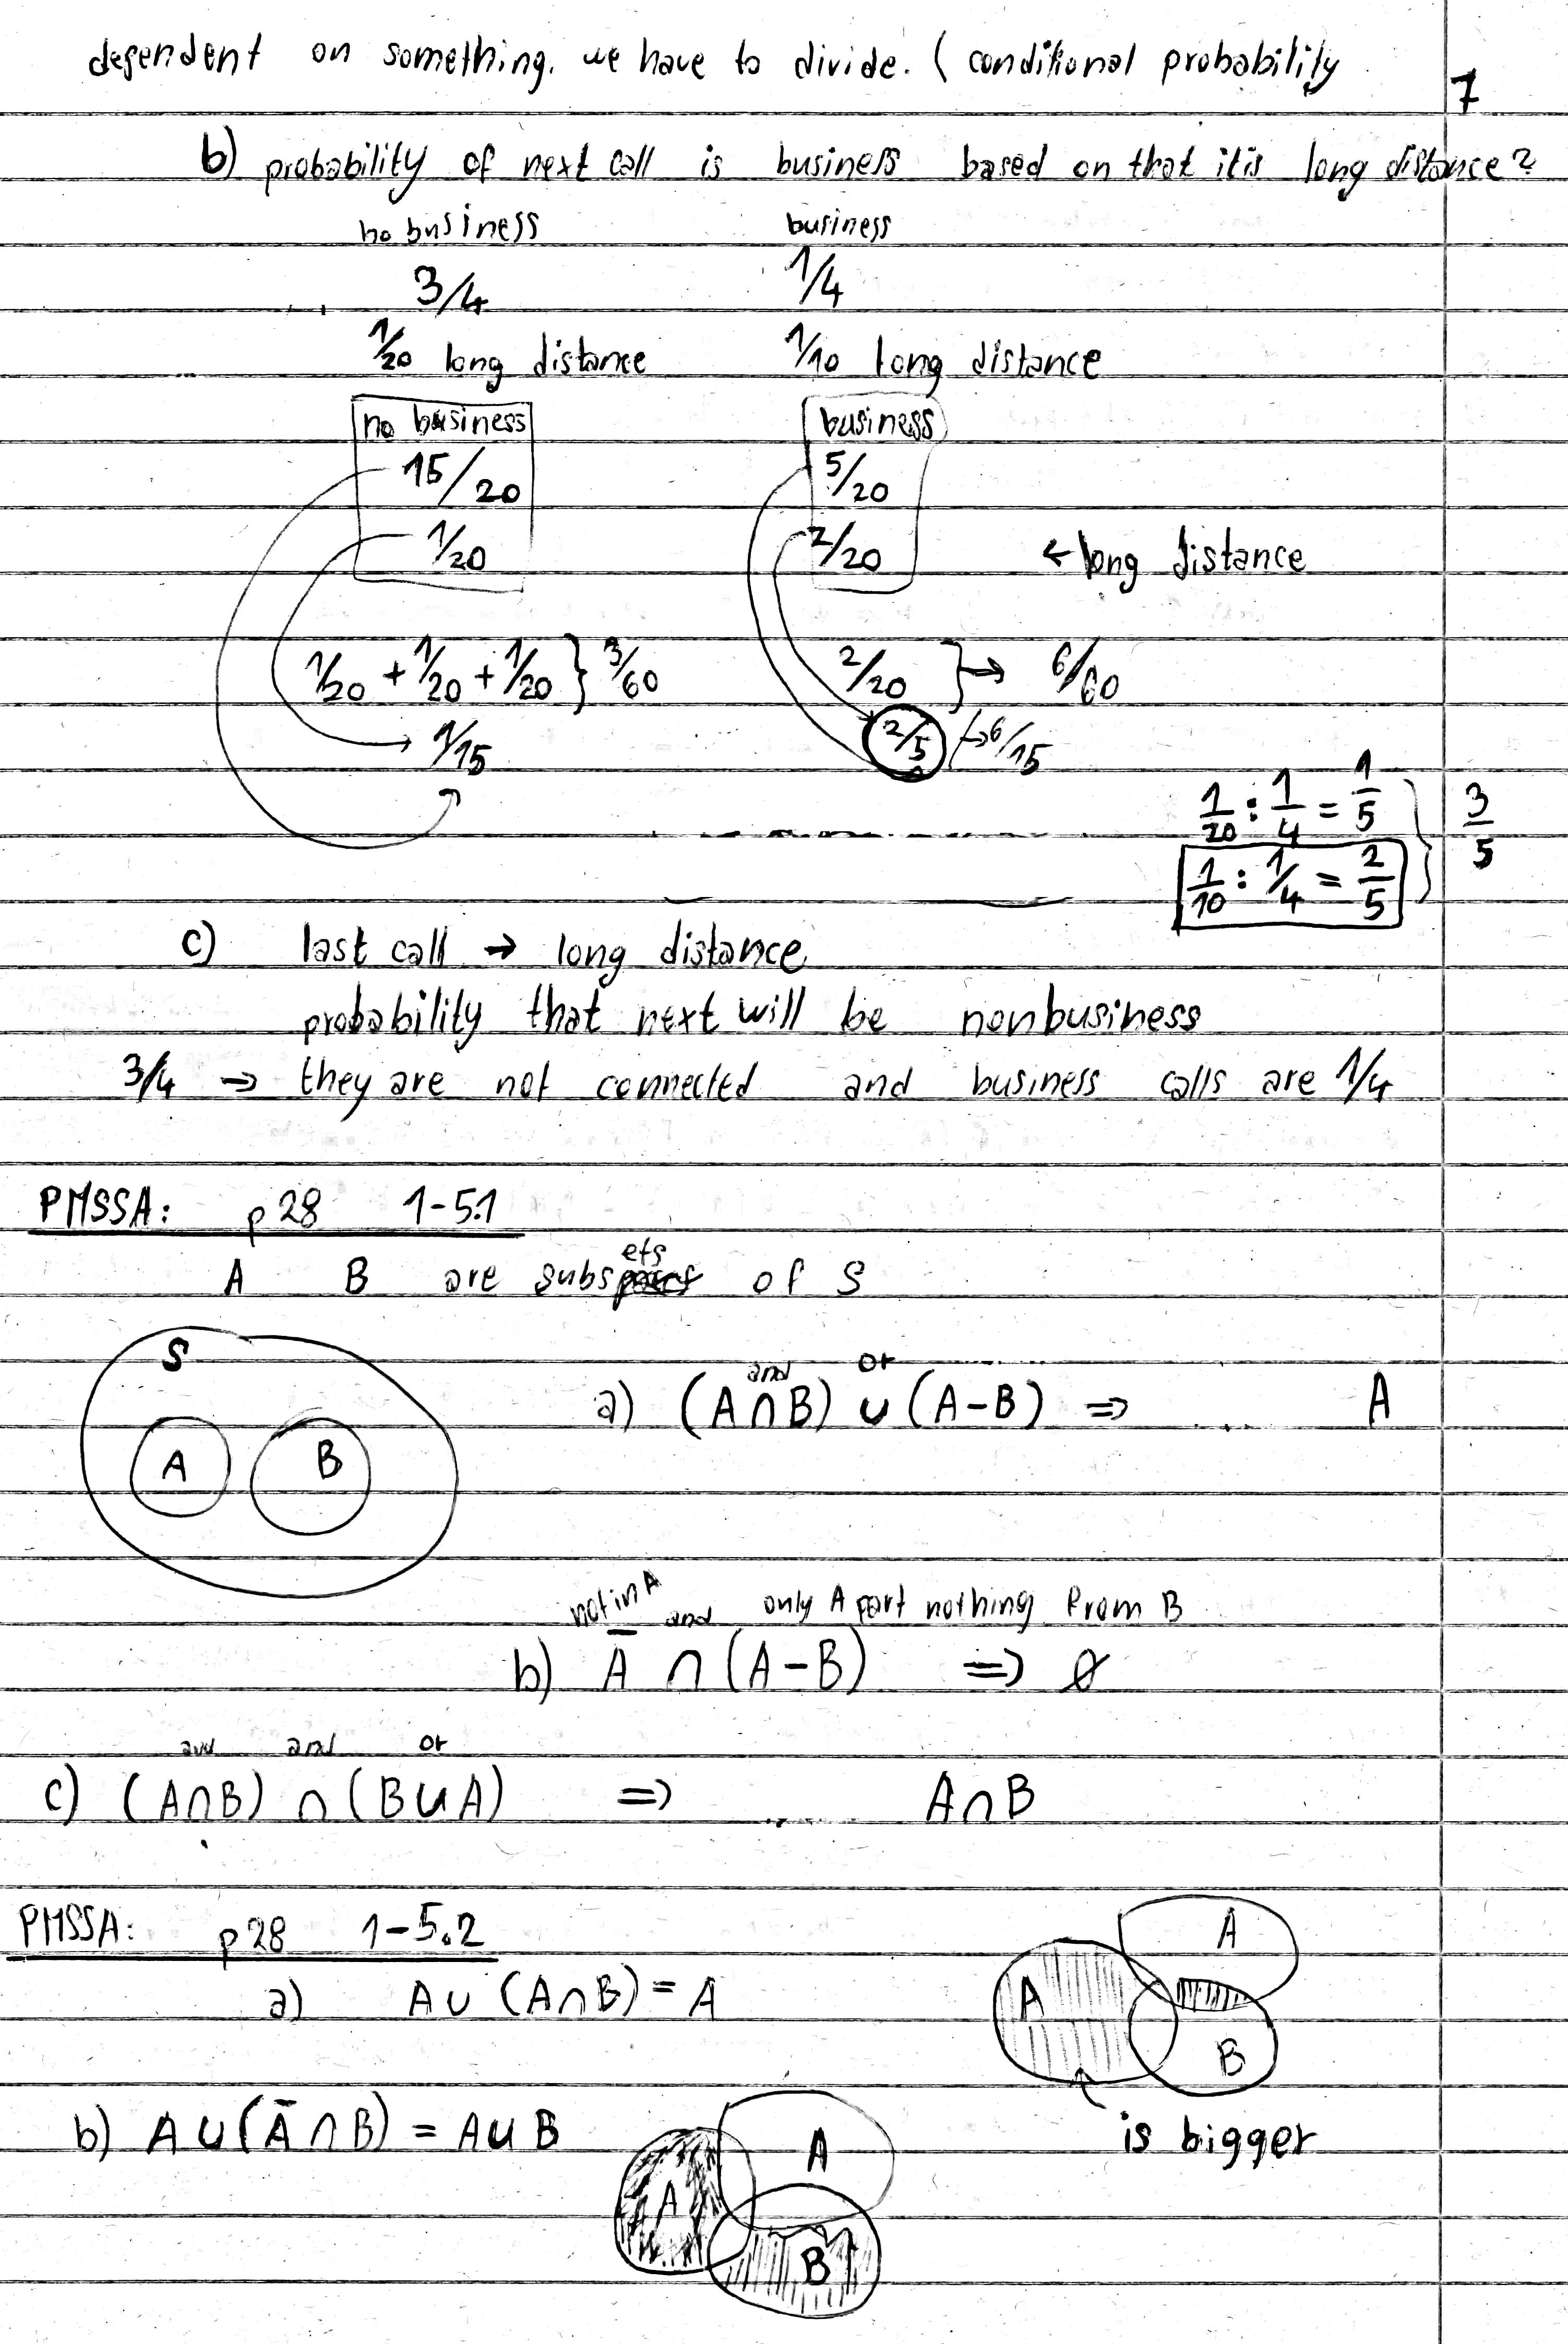 dependent on something. we have to divide. ( conditional probability
7
b) probability of next call is business based on that it is long distance?
no business business
3/4 1/4
1/20 long distance 1/10 long distance
no business business
15/20 5/20
1/20 2/20 ← long distance
1/20 + 1/20 + 1/20 } 3/60 2/20 } → 6/60
1/15 2/5 → 6/15
1/20 : 1/4 = 1/5
1/10 : 1/4 = 2/5 } 3/5
c) last call → long distance
probability that next will be nonbusiness
3/4 ⇒ they are not connected and business calls are 1/4
PMSSA: p28 1-5.1
A B are subsets of S
S
A B
and or
a) (A∩B) ∪ (A-B) ⇒ A
not in A and only A part nothing from B
b) Ā ∩ (A-B) ⇒ ∅
and and or
c) (A∩B) ∩ (B∪A) ⇒ A∩B
PMSSA: p28 1-5.2
a) A∪ (A∩B) = A
A
A
B
is bigger
b) A∪(Ā∩B) = A∪B
A
A
B